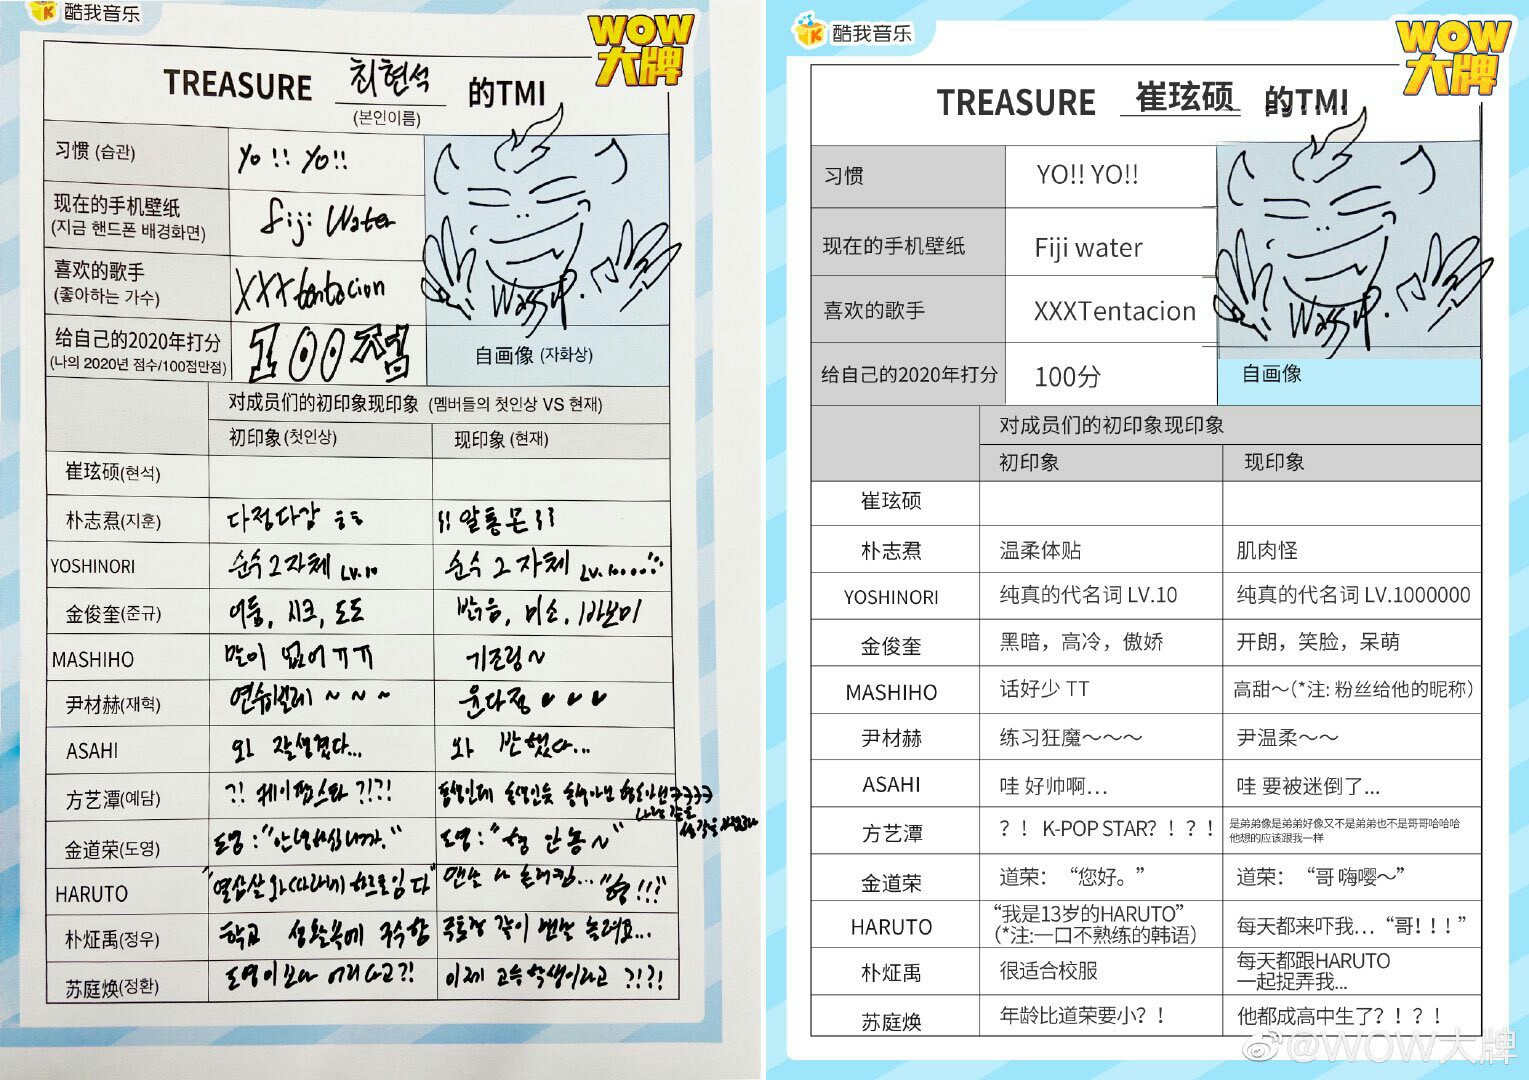 酷我音乐
WOW
大牌
TREASURE 최현석 的TMI
(본인이름)
习惯 (습관)
Yo!! Yo!!
现在的手机壁纸
(지금 핸드폰 배경화면)
fiji Water
喜欢的歌手
(좋아하는 가수)
XXXtentacion
给自己的2020年打分
(나의 2020년 점수/100점만점)
100점
Wassup.
自画像 (자화상)
对成员们的初印象现印象 (멤버들의 첫인상 VS 현재)
初印象(첫인상) 现印象 (현재)
崔玹硕(현석)
朴志焄(지훈) 다정다감 ㅎㅎ 알통몬
YOSHINORI 순수 그 자체 LV.10 순수 그 자체 LV.10000
金俊奎(준규) 어둠, 시크, 도도 밝음, 미소, 바보미
MASHIHO 말이 없어 ㅠㅠ 기조링~
尹材赫(재혁) 연습벌레 ~ ~ ~ 윤다정
ASAHI 와 잘생겼다... 와 반했다...
方艺潭(예담) ?! 케이팝스타 ?!?! 동생인데 동생인듯 동생아닌
金道荣(도영) 도영:"안녕하십니까." 도영:"형 안농~"
HARUTO "열삼살 와타나베 하루토입다" 맨날 나 놀래킴..."형!!!"
朴炡禹(정우) 학교 생활복에 구수함 루토랑 같이 맨날 놀려요...
苏庭焕(정환) 도영이보다 어리다고?! 이제 고등학생이라고 ?!?!
酷我音乐
WOW
大牌
TREASURE 崔玹硕 的TMI
习惯 YO!! YO!!
现在的手机壁纸 Fiji water
喜欢的歌手 XXXTentacion
给自己的2020年打分 100分
Wassup.
自画像
对成员们的初印象现印象
初印象 现印象
崔玹硕
朴志焄 温柔体贴 肌肉怪
YOSHINORI 纯真的代名词 LV.10 纯真的代名词 LV.1000000
金俊奎 黑暗，高冷，傲娇 开朗，笑脸，呆萌
MASHIHO 话好少 TT 高甜～(*注: 粉丝给他的昵称)
尹材赫 练习狂魔～～～ 尹温柔～～
ASAHI 哇 好帅啊… 哇 要被迷倒了...
方艺潭 ？！ K-POP STAR？！？！ 是弟弟像是弟弟好像又不是弟弟也不是哥哥哈哈哈
他想的应该跟我一样
金道荣 道荣：“您好。” 道荣：“哥 嗨嘤～”
HARUTO “我是13岁的HARUTO”
(*注:一口不熟练的韩语) 每天都来吓我…“哥！！！”
朴炡禹 很适合校服 每天都跟HARUTO
一起捉弄我...
苏庭焕 年龄比道荣要小？！ 他都成高中生了？！？！
@WOW大牌